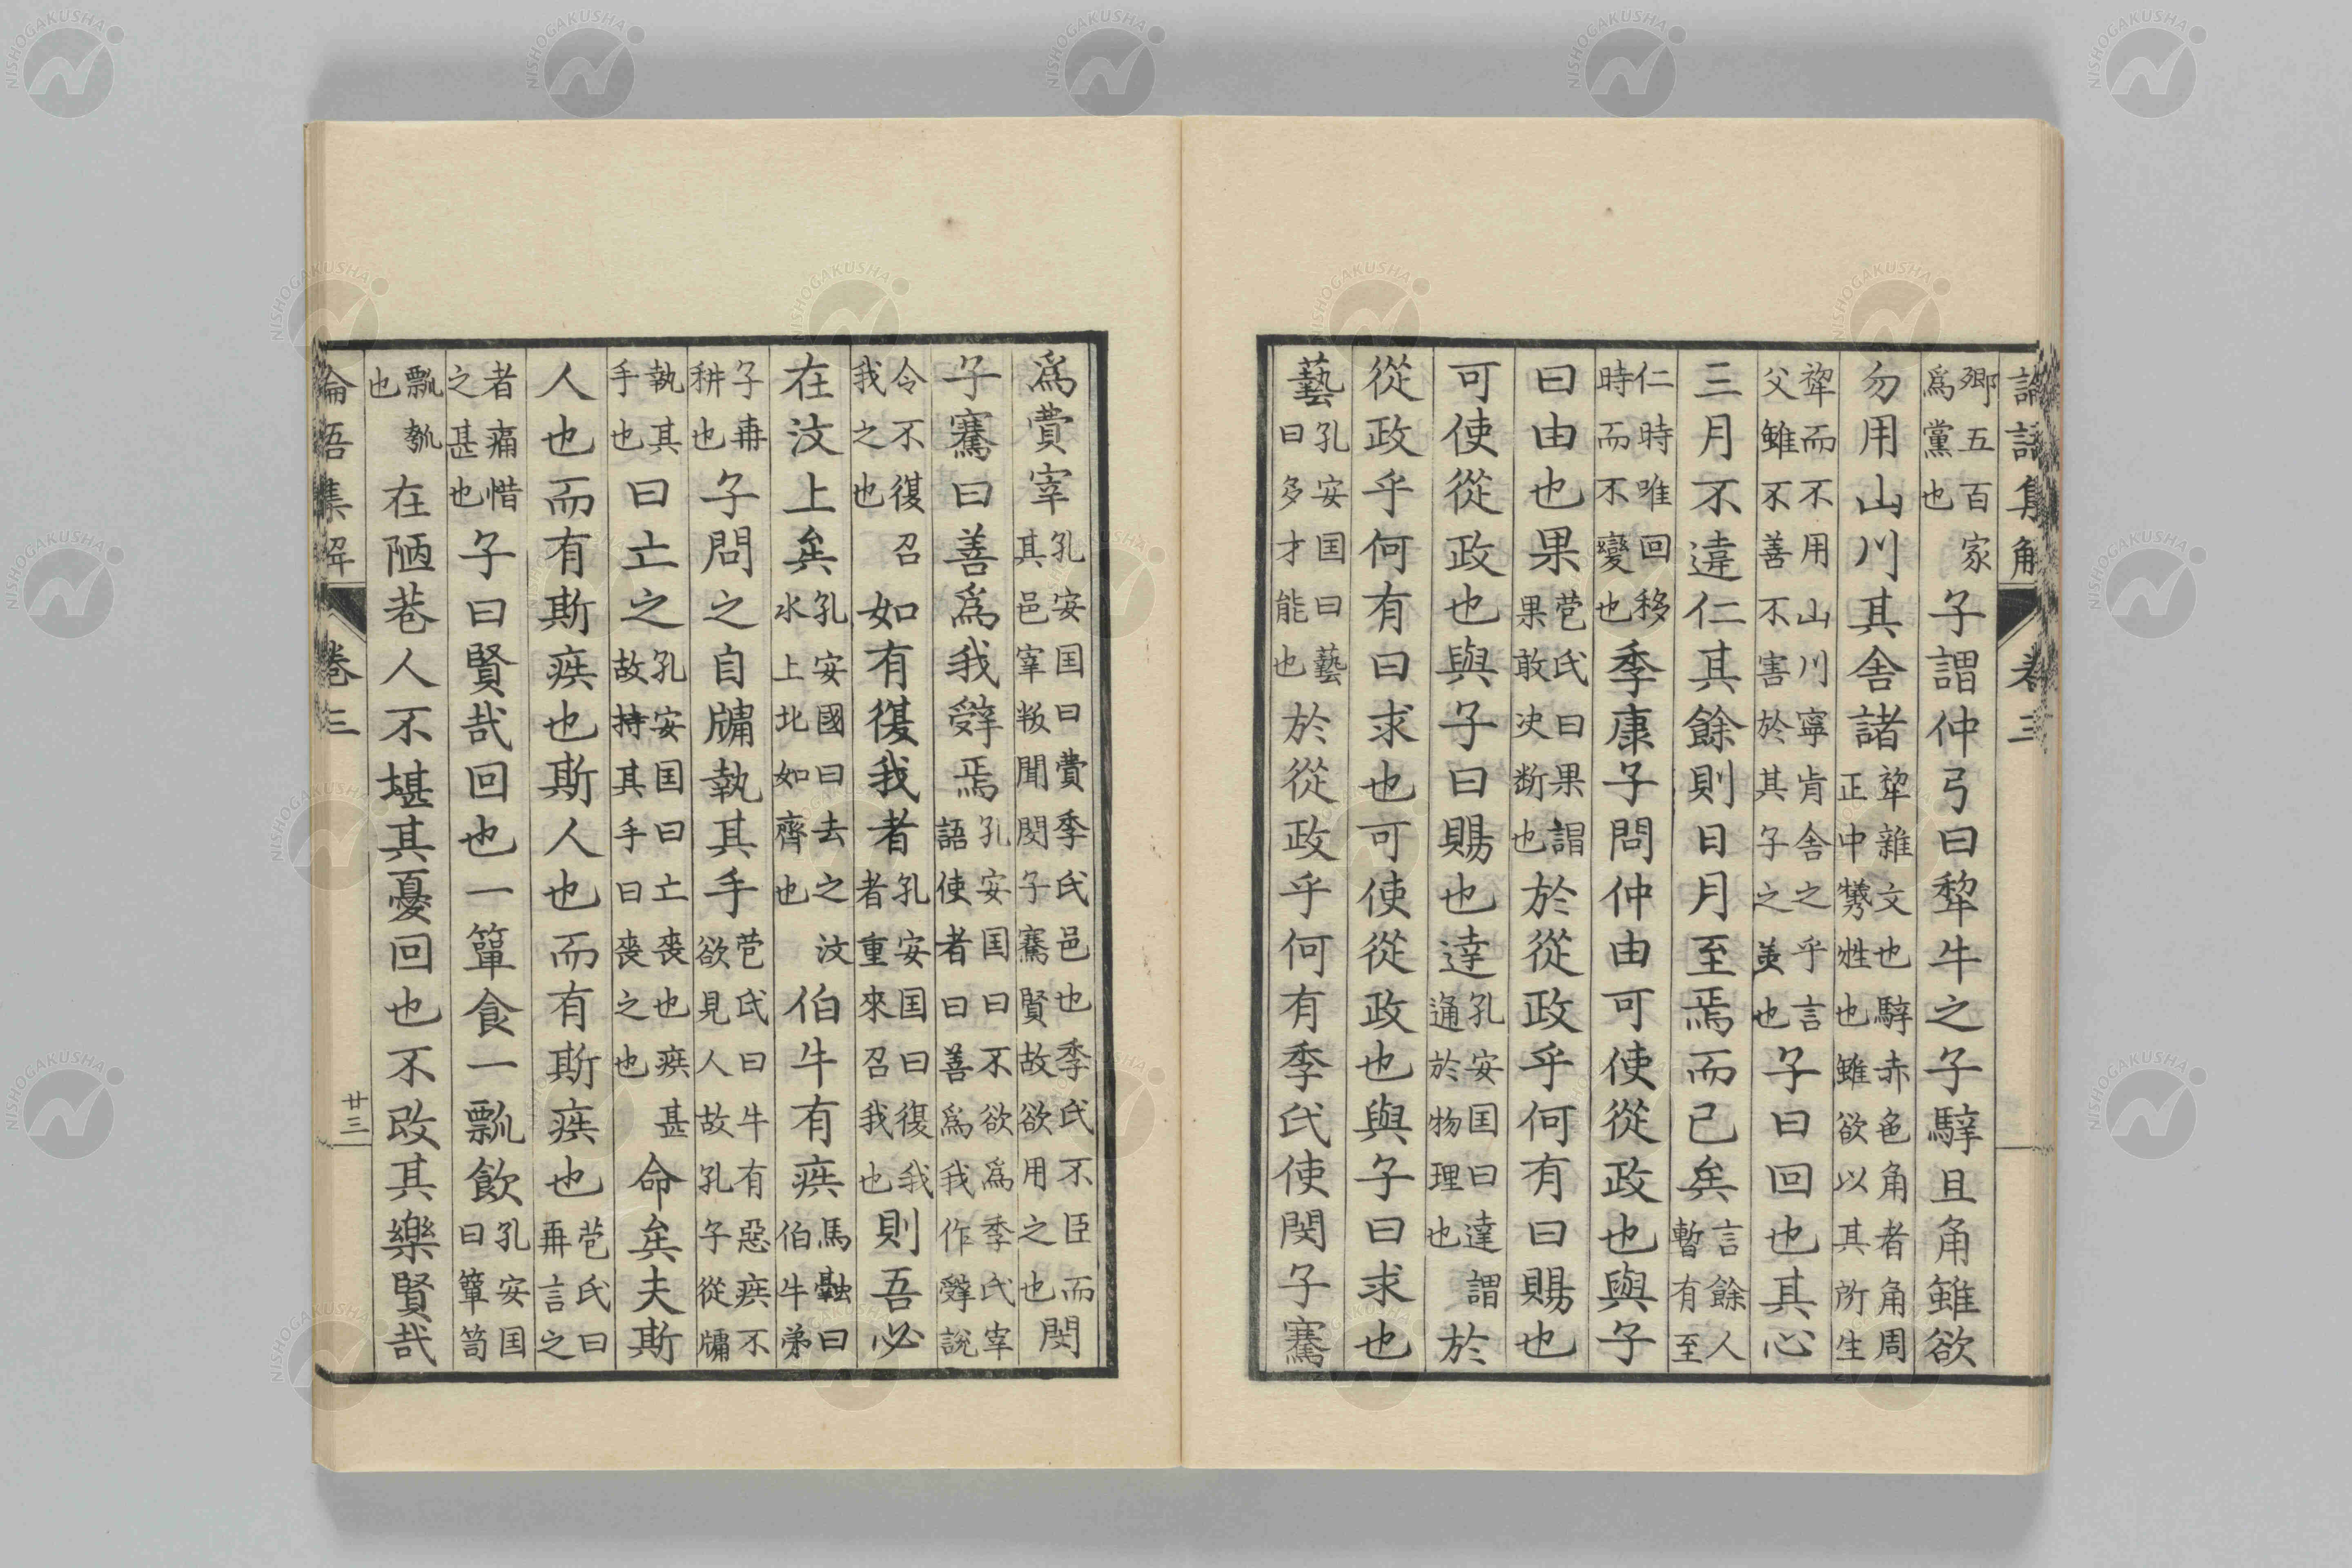 論語集解　卷三
鄉五百家爲黨也子謂仲弓曰犂牛之子騂且角雖欲
勿用山川其舍諸犂雜文也騂赤色角者角周正中犧牲也雖欲以其所生
犂而不用山川寧肯舍之乎言父雖不善不害於其子之美也子曰回也其心
三月不違仁其餘則日月至焉而已矣言餘人暫有至
仁時唯回移時而不變也季康子問仲由可使從政也與子
曰由也果苞氏曰果謂果敢决断也於從政乎何有曰賜也
可使從政也與子曰賜也達孔安国曰達謂通於物理也於
從政乎何有曰求也可使從政也與子曰求也
藝孔安国曰藝曰多才能也於從政乎何有季氏使閔子騫
爲費宰孔安国曰費季氏邑也季氏不臣而其邑宰叛聞閔子騫賢故欲用之也閔
子騫曰善爲我辭焉孔安国曰不欲爲季氏宰語使者曰善爲我作辭說
令不復召我之也如有復我者孔安国曰復我者重來召我也則吾必
在汶上矣孔安國曰去之汶水上北如齊也伯牛有疾馬融曰伯牛弟
子冉耕也子問之自牖執其手苞氏曰牛有惡疾不欲見人故孔子從牖
執其手也曰亡之孔安国曰亡喪也疾甚故持其手曰喪之也命矣夫斯
人也而有斯疾也斯人也而有斯疾也苞氏曰再言之
者痛惜之甚也子曰賢哉回也一簞食一瓢飲孔安国曰簞笥
瓢瓠也在陋巷人不堪其憂回也不改其樂賢哉
論語集解　卷三　廿三